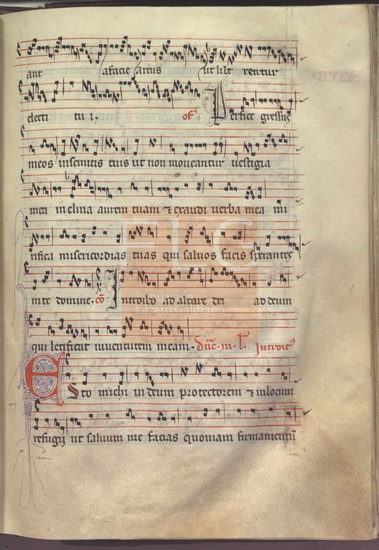 ant a facie arcus ut libe rentur
electi tu i. of̄ Perfice gressus
meos in semitis tuis ut non moveantur vestigia
mea inclina aurem tuam ⁊ exaudi verba mea mi
rifica misericordias tuas qui salvos facis sperantes
in te domine. cō Introibo ad altare dei ad deum
qui letificat iuventutem meam. Introit
Esto michi in deum protectorem ⁊ in locum
refugii ut salvum me facias quoniam firmamentū